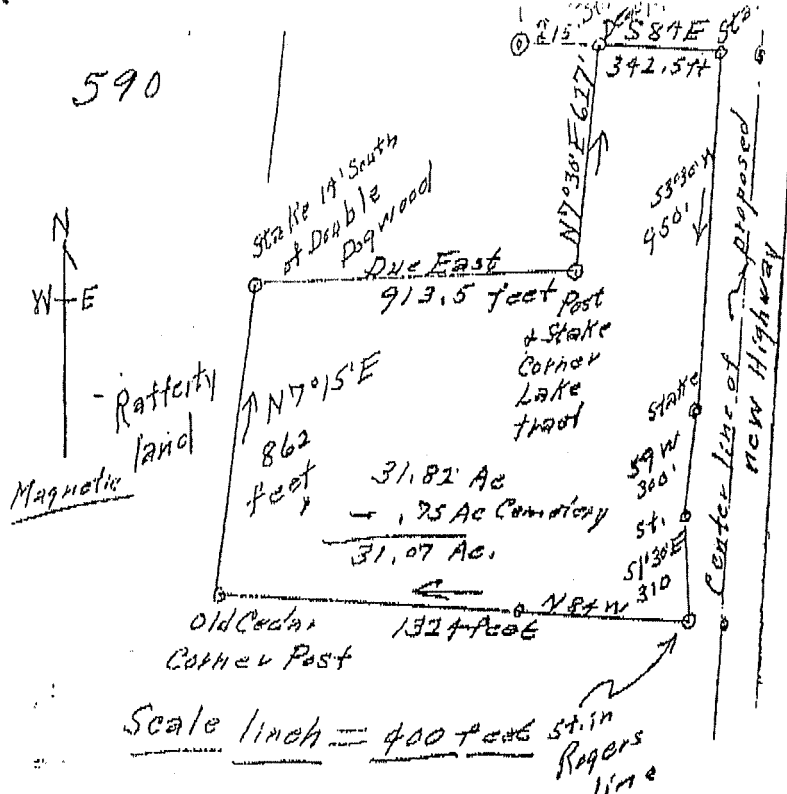 590
S84E
342.5ft
N7°30'E 617'
S3°30'W
950'
Stake 14' South
of Double
Dogwood
Due East
913.5 feet
Post
& Stake
Corner
Lake
tract
N
W E
Magnetic
Rafferty
land
N7°15'E
862
feet
31.82 Ac
- .75 Ac Cemetery
31.07 Ac.
stake
S9W
300'
st.
S1°30'E
310
Center line of proposed
new Highway
N84W
1324 feet
Old Cedar
Corner Post
Scale 1 inch = 400 feet
St. in
Rogers
line